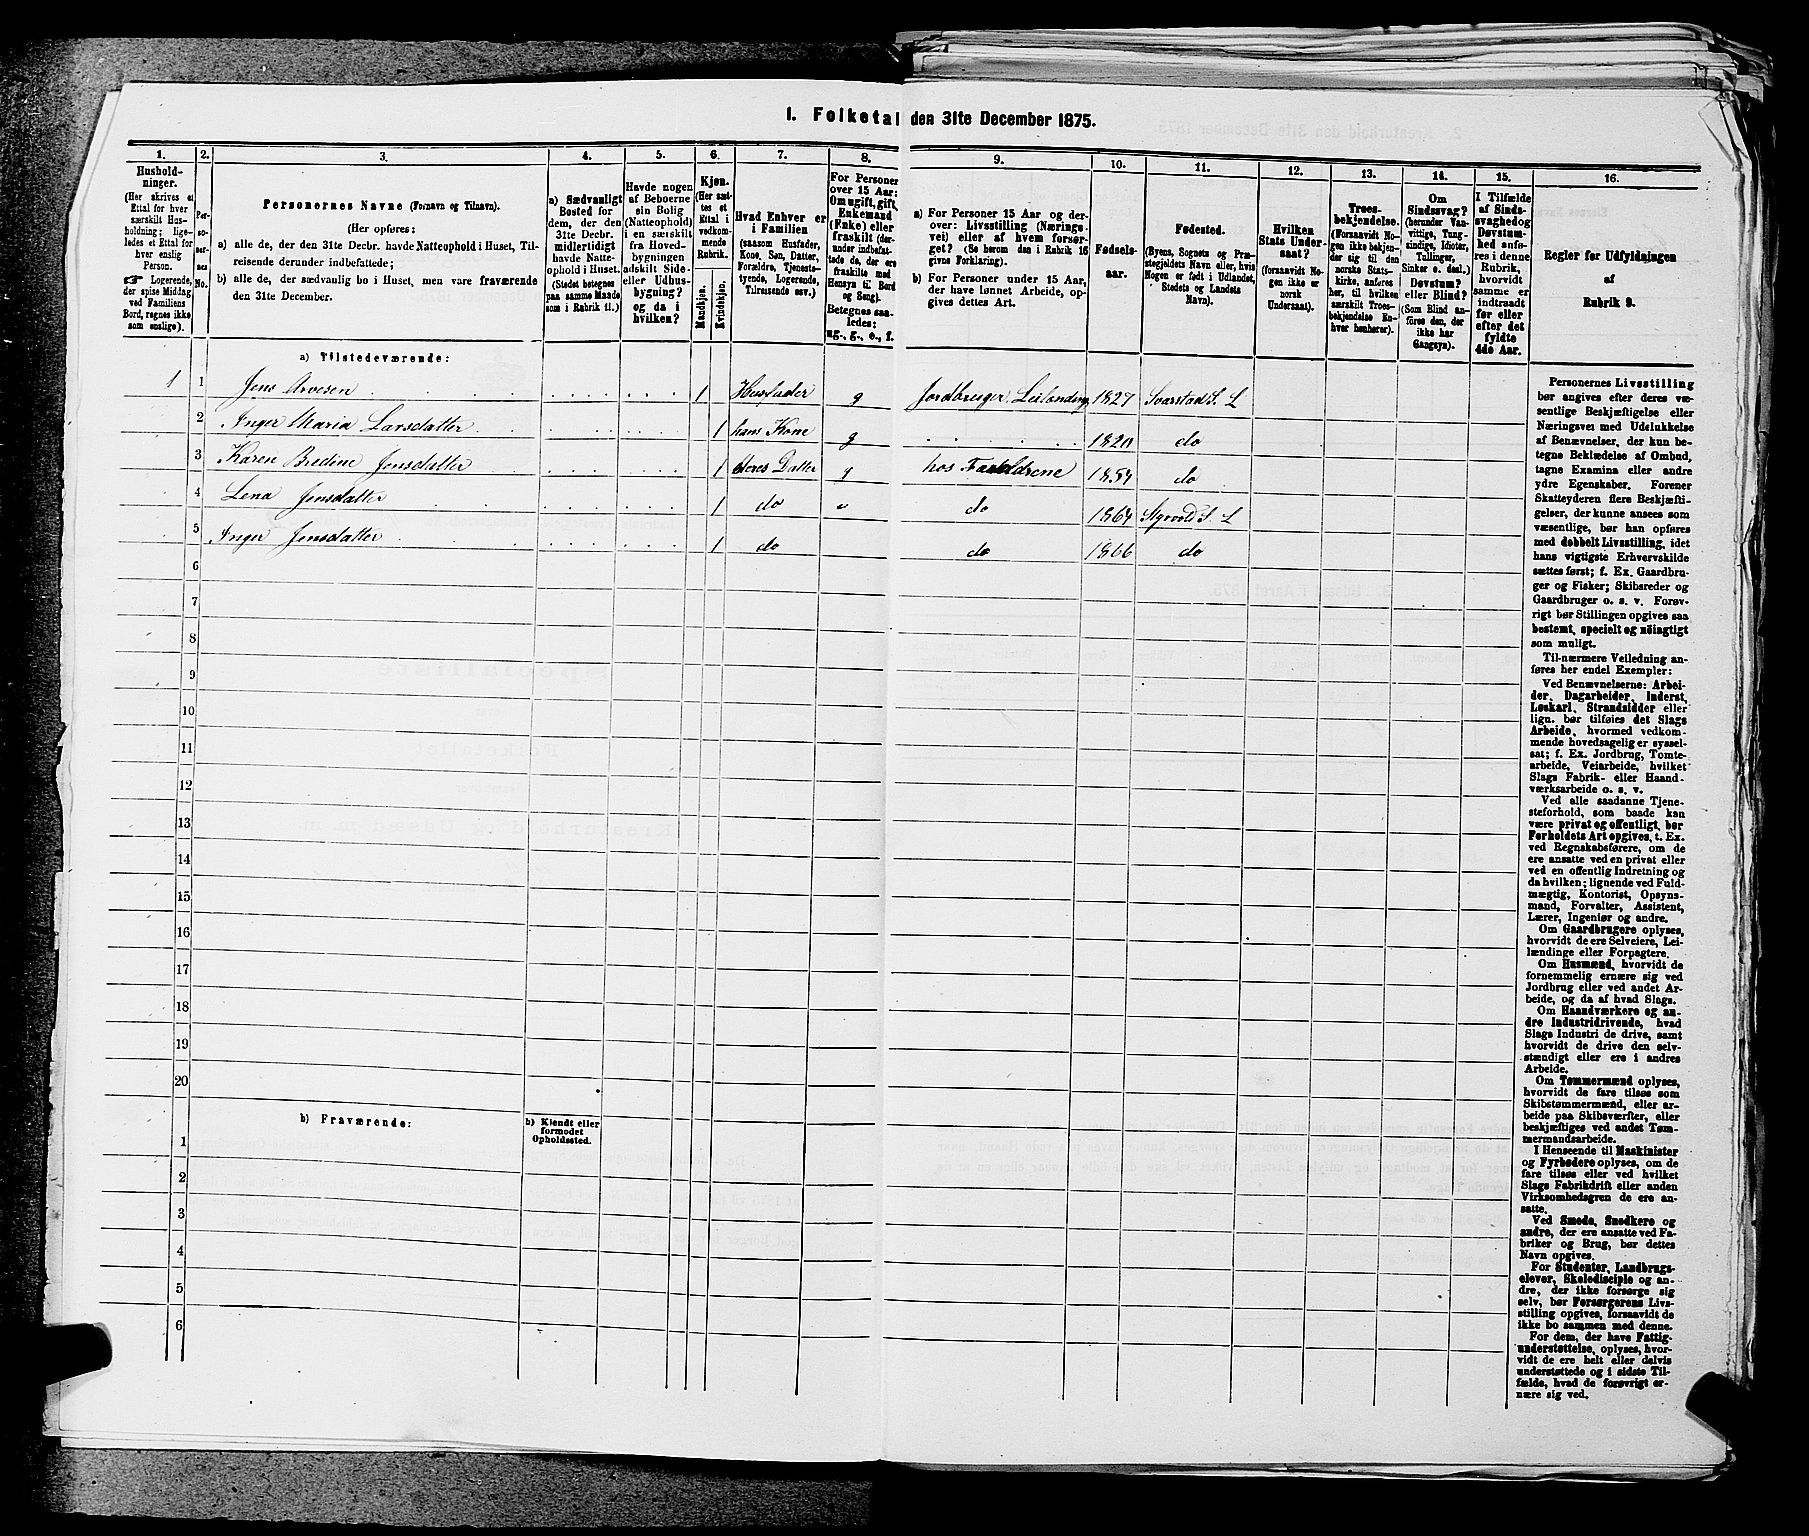 1. Folketal den 31te December 1875.
1.
Hushold-
ninger.
(Her skrives et
Ettal for hver
særskilt Hus-
holdning; lige-
ledes et Ettal for
hver enslig
Person.
☞ Logerende,
der spise Middag
ved Familiens
Bord, regnes ikke
som enslige).
2.
Per-
so-
ner-
nes
No.
3.
Personernes Navne (Fornavn og Tilnavn).
(Her opføres:
a) alle de, der den 31te Decbr. havde Natteophold i Huset, Til-
reisende derunder indbefattede;
b) alle de, der sædvanlig bo i Huset, men vare fraværende
den 31te December.
4.
a) Sædvanligt
Bosted for
dem, der den
31te Decbr.
midlertidigt
havde Natte-
ophold i Huset.
(Stedet betegnes
paa samme Maade
som i Rubrik 11.)
5.
Havde nogen
af Beboerne
sin Bolig
(Natteophold)
i en særskilt
fra Hoved-
bygningen
adskilt Side-
eller Udhus-
bygning?
og da i
hvilken?
6.
Kjøn.
(Her sæt-
tes et
Ettal i
vedkom-
mende
Rubrik.
Mandkjøn.
Kvindekjøn.
7.
Hvad Enhver er
i Familien
(saasom Husfader,
Kone, Søn, Datter,
Forældre, Tjeneste-
tyende, Logerende,
Tilreisende osv.)
8.
For Personer
over 15 Aar:
Om ugift, gift,
Enkemand
(Enke) eller
fraskilt (der-
under indbefat-
tede de, der ere
fraskilte med
Hensyn til Bord
og Seng).
Betegnes saa-
ledes:
ug., g., e., f.
9.
a) For Personer 15 Aar og der-
over: Livsstilling (Nærings-
vei) eller af hvem forsør-
get? (Se herom den i Rubrik 16
givne Forklaring).
b) For Personer under 15 Aar,
der have lønnet Arbeide, op-
gives dettes Art.
10.
Fødsels-
aar.
11.
Fødested.
(Byens, Sognets og Præ-
stegjeldets Navn eller, hvis
Nogen er født i Udlandet,
Stedets og Landets
Navn).
12.
Hvilken
Stats Under-
saat?
(forsaavidt No-
gen ikke er
norsk
Undersaat).
13.
Troes-
bekjendelse.
(Forsaavidt No-
gen ikke bekjen-
der sig til den
norske Stats-
kirke, anføres
her, til hvilken
særskilt Troes-
bekjendelse En-
hver henhører).
14.
Om
Sindssvag?
(herunder Van-
vittige, Tung-
sindige, Idioter,
Tullinger,
Sinker o. desl.)
Døvstum?
eller Blind?
(Som Blind an-
føres den, der
ikke har
Gangsyn).
15.
I Tilfælde
af Sinds-
svaghed og
Døvstum-
hed anfø-
res i denne
Rubrik,
hvorvidt
samme er
indtraadt
før eller
efter det
fyldte
4de Aar.
16.
Regler for Udfyldningen
af
Rubrik 9.
a) Tilstedeværende:
1 1 Jens Arvesen 1 Husfader g Jordbruger Leilænding 1827 Svarstad S. L
2 Anger Maria Larsdatter 1 hans Kone g do
3 Karen Bredine Jensdatter 1 deres Datter hos Forældrene do
4 Lena Jensdatter 1 do do 1864 S. L
5 Anger Jensdatter 1 do do 1866 do
6
7
8
9
10
11
12
13
14
15
16
17
18
19
20
b) Fraværende:
b) Kjendt eller
formodet
Opholdssted.
1
2
3
4
5
6
Personernes Livsstilling
bør angives efter deres væ-
sentlige Beskjæftigelse eller
Næringsvei med Udelukkelse
af Benævnelser, der kun be-
tegne Beklædelse af Ombud,
tagne Examina eller andre
ydre Egenskaber. Forener
Skatteyderen flere Beskjæfti-
gelser, der kunne ansees som
væsentlige, bør han opføres
med dobbelt Livsstilling, idet
hans vigtigste Erhvervskilde
sættes først; f. Ex. Gaardbru-
ger og Fisker; Skibsreder og
Gaardbruger o. s. v. Forøv-
rigt bør Stillingen opgives saa
bestemt, specielt og nøiagtigt
som muligt.
Til nærmere Veiledning an-
føres her endel Exempler:
Ved Benævnelserne: Arbei-
der, Dagarbeider, Inderst,
Løskarl, Strandsidder eller
lign. bør tilføies det Slags
Arbeide, hvormed vedkom-
mende hovedsagelig er syssel-
sat; f. Ex. Jordbrug, Tomte-
arbeide, Veiarbeide, hvilket
Slags Fabrik- eller Haand-
værksarbeide o. s. v.
Ved alle saadanne Tjene-
steforhold, som baade kan
være privat og offentligt, bør
Forholdets Art opgives, t. Ex.
ved Regnskabsførere, om de
ere ansatte ved en privat eller
ved en offentlig Indretning og
da hvilken; lignende ved Fuld-
mægtig, Kontorist, Opsyns-
mand, Forvalter, Assistent,
Lærer, Ingeniør og andre.
Om Gaardbrugere oplyses,
hvorvidt de ere Selveiere, Lei-
lændinge eller Forpagtere.
Om Husmænd, hvorvidt de
fornemmelig ernære sig ved
Jordbrug eller ved andet Ar-
beide, og da af hvad Slags.
Om Haandværkere og an-
dre Industridrivende, hvad
Slags Industri de drive, samt
hvorvidt de drive den selv-
stændigt eller ere i andres
Arbeide.
Om Tømmermænd oplyses,
hvorvidt de fare tilsøs som
Skibstømmermænd, eller ar-
beide paa Skibsværfter, eller
beskjæftiges ved andet Tøm-
mermandsarbeide.
I Henseende til Maskinister
og Fyrbødere oplyses, om de
fare tilsøs eller ved hvilket
Slags Fabrikdrift eller anden
Virksomhedsgren de ere an-
satte.
Ved Smede, Snedkere og
andre, der ere ansatte ved Fa-
briker og Brug, bør dettes
Navn opgives.
For Studenter, Landbrugs-
elever, Skoledisciple og an-
dre, der ikke forsørge sig
selv, bør Forsørgerens Livs-
stilling opgives, forsaavidt de
ikke bo sammen med denne.
For dem, der have Fattig-
understøttelse, oplyses, hvor-
vidt de ere helt eller delvis
understøttede og i sidste Til-
fælde, hvad de forøvrigt er-
nære sig ved.